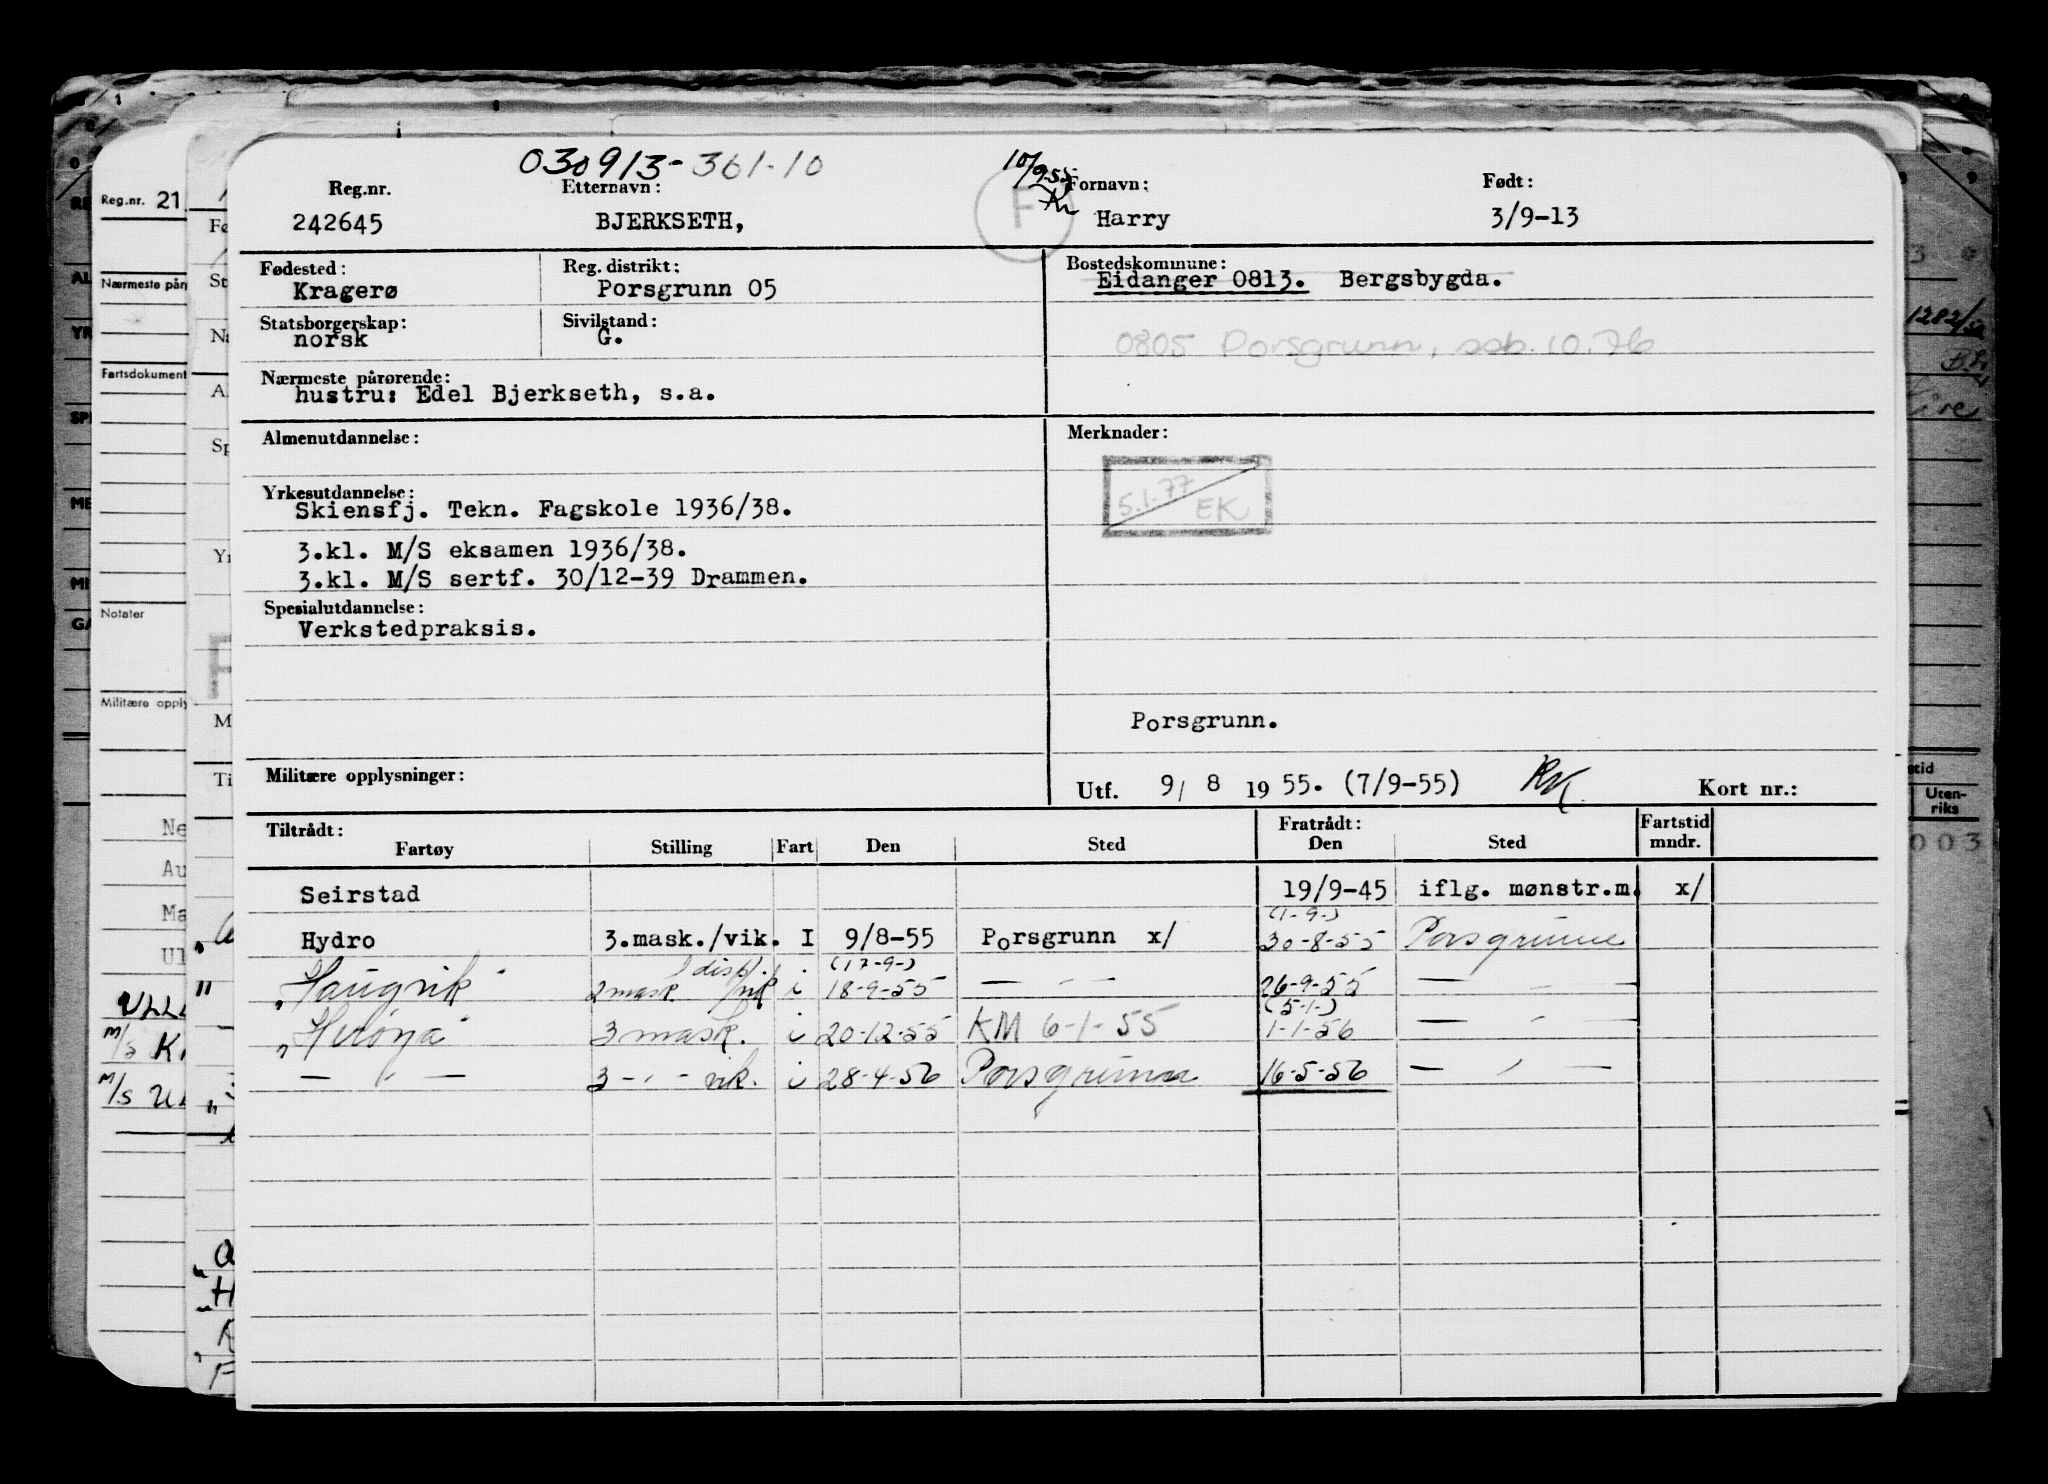 030913-361-10
10/9-55
Reg.nr. Etternavn: Fornavn: Født:
242645 BJERKSETH, F Harry 3/9-13
Fødested: Reg. distrikt: Bostedskommune:
Kragerø Porsgrunn 05 Eidanger 0813. Bergsbygda.
Statsborgerskap: Sivilstand:
norsk G. 0805 Porsgrunn, ssb. 10.76
Nærmeste pårørende:
hustru: Edel Bjerkseth, s.a.
Almenutdannelse: Merknader:
5.1.77 EK
Yrkesutdannelse:
Skiensfj. Tekn. Fagskole 1936/38.
3.kl. M/S eksamen 1936/38.
3.kl. M/S sertf. 30/12-39 Drammen.
Spesialutdannelse:
Verkstedpraksis.
Porsgrunn.
Militære opplysninger: Utf. 9/ 8 19 55. (7/9-55) RK. Kort nr.:
Tiltrådt: Fratrådt: Fartstid
Fartøy Stilling Fart Den Sted Den Sted mndr.
Seirstad 19/9-45 iflg. mønstr.m. x/
(1-9-)
Hydro 3.mask./vik. I 9/8-55 Porsgrunn x/ 30-8-55 Porsgrunn
disp. (17-9-)
"Haugvik" 2 mask /vik i 18-9-55 — " — 26-9-55 — " —
(5-1-)
"Herøya" 3 mask. i 20-12-55 KM 6-1-55 1-1-56 — " —
— " — 3 - " - vik. i 28-4-56 Porsgrunn 16-5-56 — " —
Reg.nr. 21
Nærmeste pår
Fartsdokument
Notater
Militære opply
Ne
Au
Ma
Ul
Uten-
riks
003